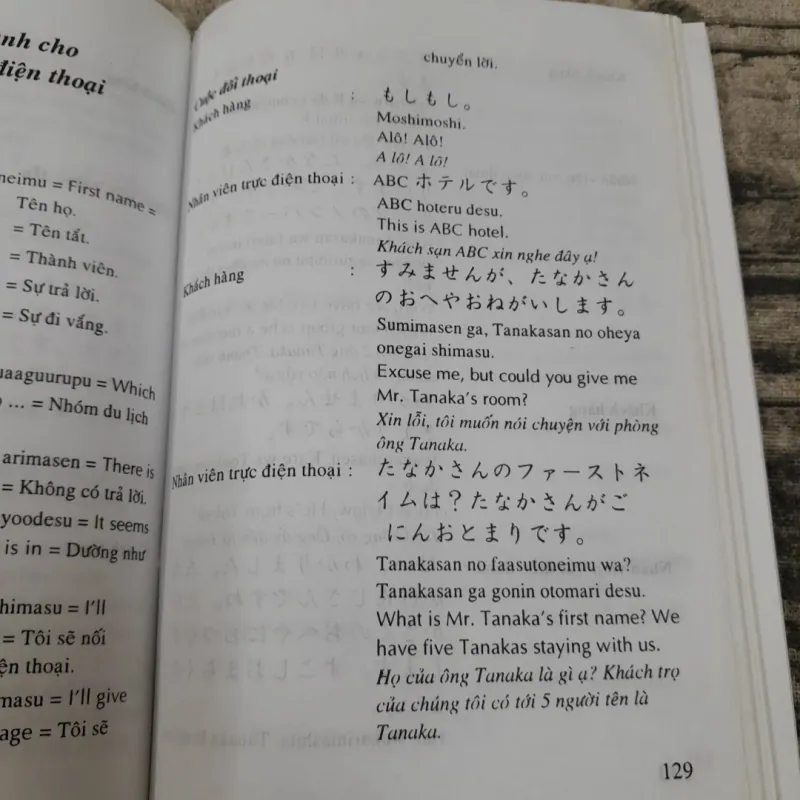 ành cho
điện thoại
neimu = First name =
Tên họ.
= Tên tắt.
= Thành viên.
= Sự trả lời.
= Sự đi vắng.
uaaguurupu = Which
... = Nhóm du lịch
arimasen = There is
= Không có trả lời.
yoodesu = It seems
is in = Dường như
himasu = I'll
= Tôi sẽ nối
điện thoại.
masu = I'll give
age = Tôi sẽ
chuyển lời.
Cuộc đối thoại
Khách hàng : もしもし。
Moshimoshi.
Alô! Alô!
A lô! A lô!
Nhân viên trực điện thoại : ABC ホテルです。
ABC hoteru desu.
This is ABC hotel.
Khách sạn ABC xin nghe đây ạ!
Khách hàng : すみませんが、たなかさん
のおへやおねがいします。
Sumimasen ga, Tanakasan no oheya
onegai shimasu.
Excuse me, but could you give me
Mr. Tanaka's room?
Xin lỗi, tôi muốn nói chuyện với phòng
ông Tanaka.
Nhân viên trực điện thoại : たなかさんのファーストネ
イムは？たなかさんがご
にんおとまりです。
Tanakasan no faasutoneimu wa?
Tanakasan ga gonin otomari desu.
What is Mr. Tanaka's first name? We
have five Tanakas staying with us.
Họ của ông Tanaka là gì ạ? Khách trọ
của chúng tôi có tới 5 người tên là
Tanaka.
129